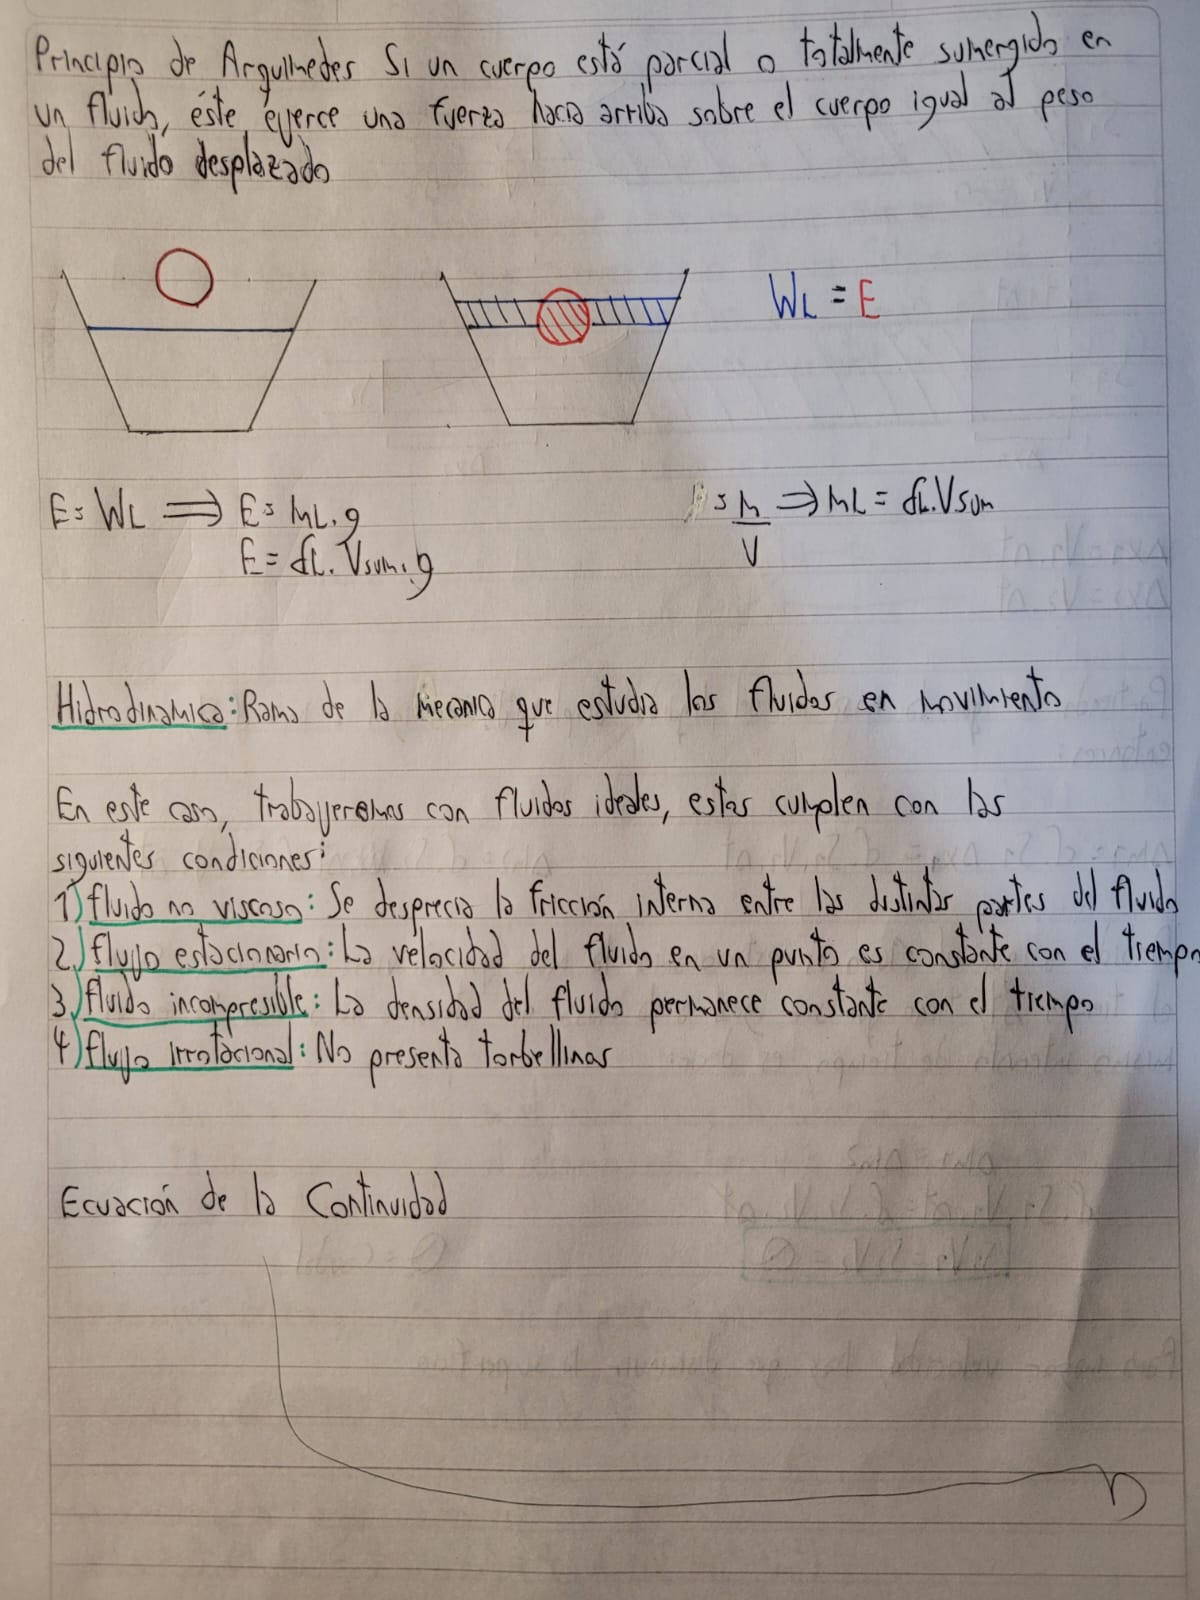 Principio de Arquimedes Si un cuerpo está parcial o totalmente sumergido en
un fluido, éste, ejerce una fuerza hacia arriba sobre el cuerpo igual al peso
del fluido desplazado
WL = E
E = WL ⟹ E = mL.g
E = δL.Vsum.g
= M/V ⟹ ML = δL.Vsum
Hidrodinamica: Rama de la mecanica que estudia los fluidos en movimiento
En este caso, trabajeremos con fluidos ideales, estas cumplen con las
siguientes condiciones:
1) fluido no viscoso: Se desprecia la fricción interna entre las distintas partes del fluido
2) flujo estacionario: La velocidad del fluido en un punto es constante con el tiempo
3) fluido incompresible: La densidad del fluido permanece constante con el tiempo
4) flujo irrotacional: No presenta torbellinas
Ecuación de la Continuidad